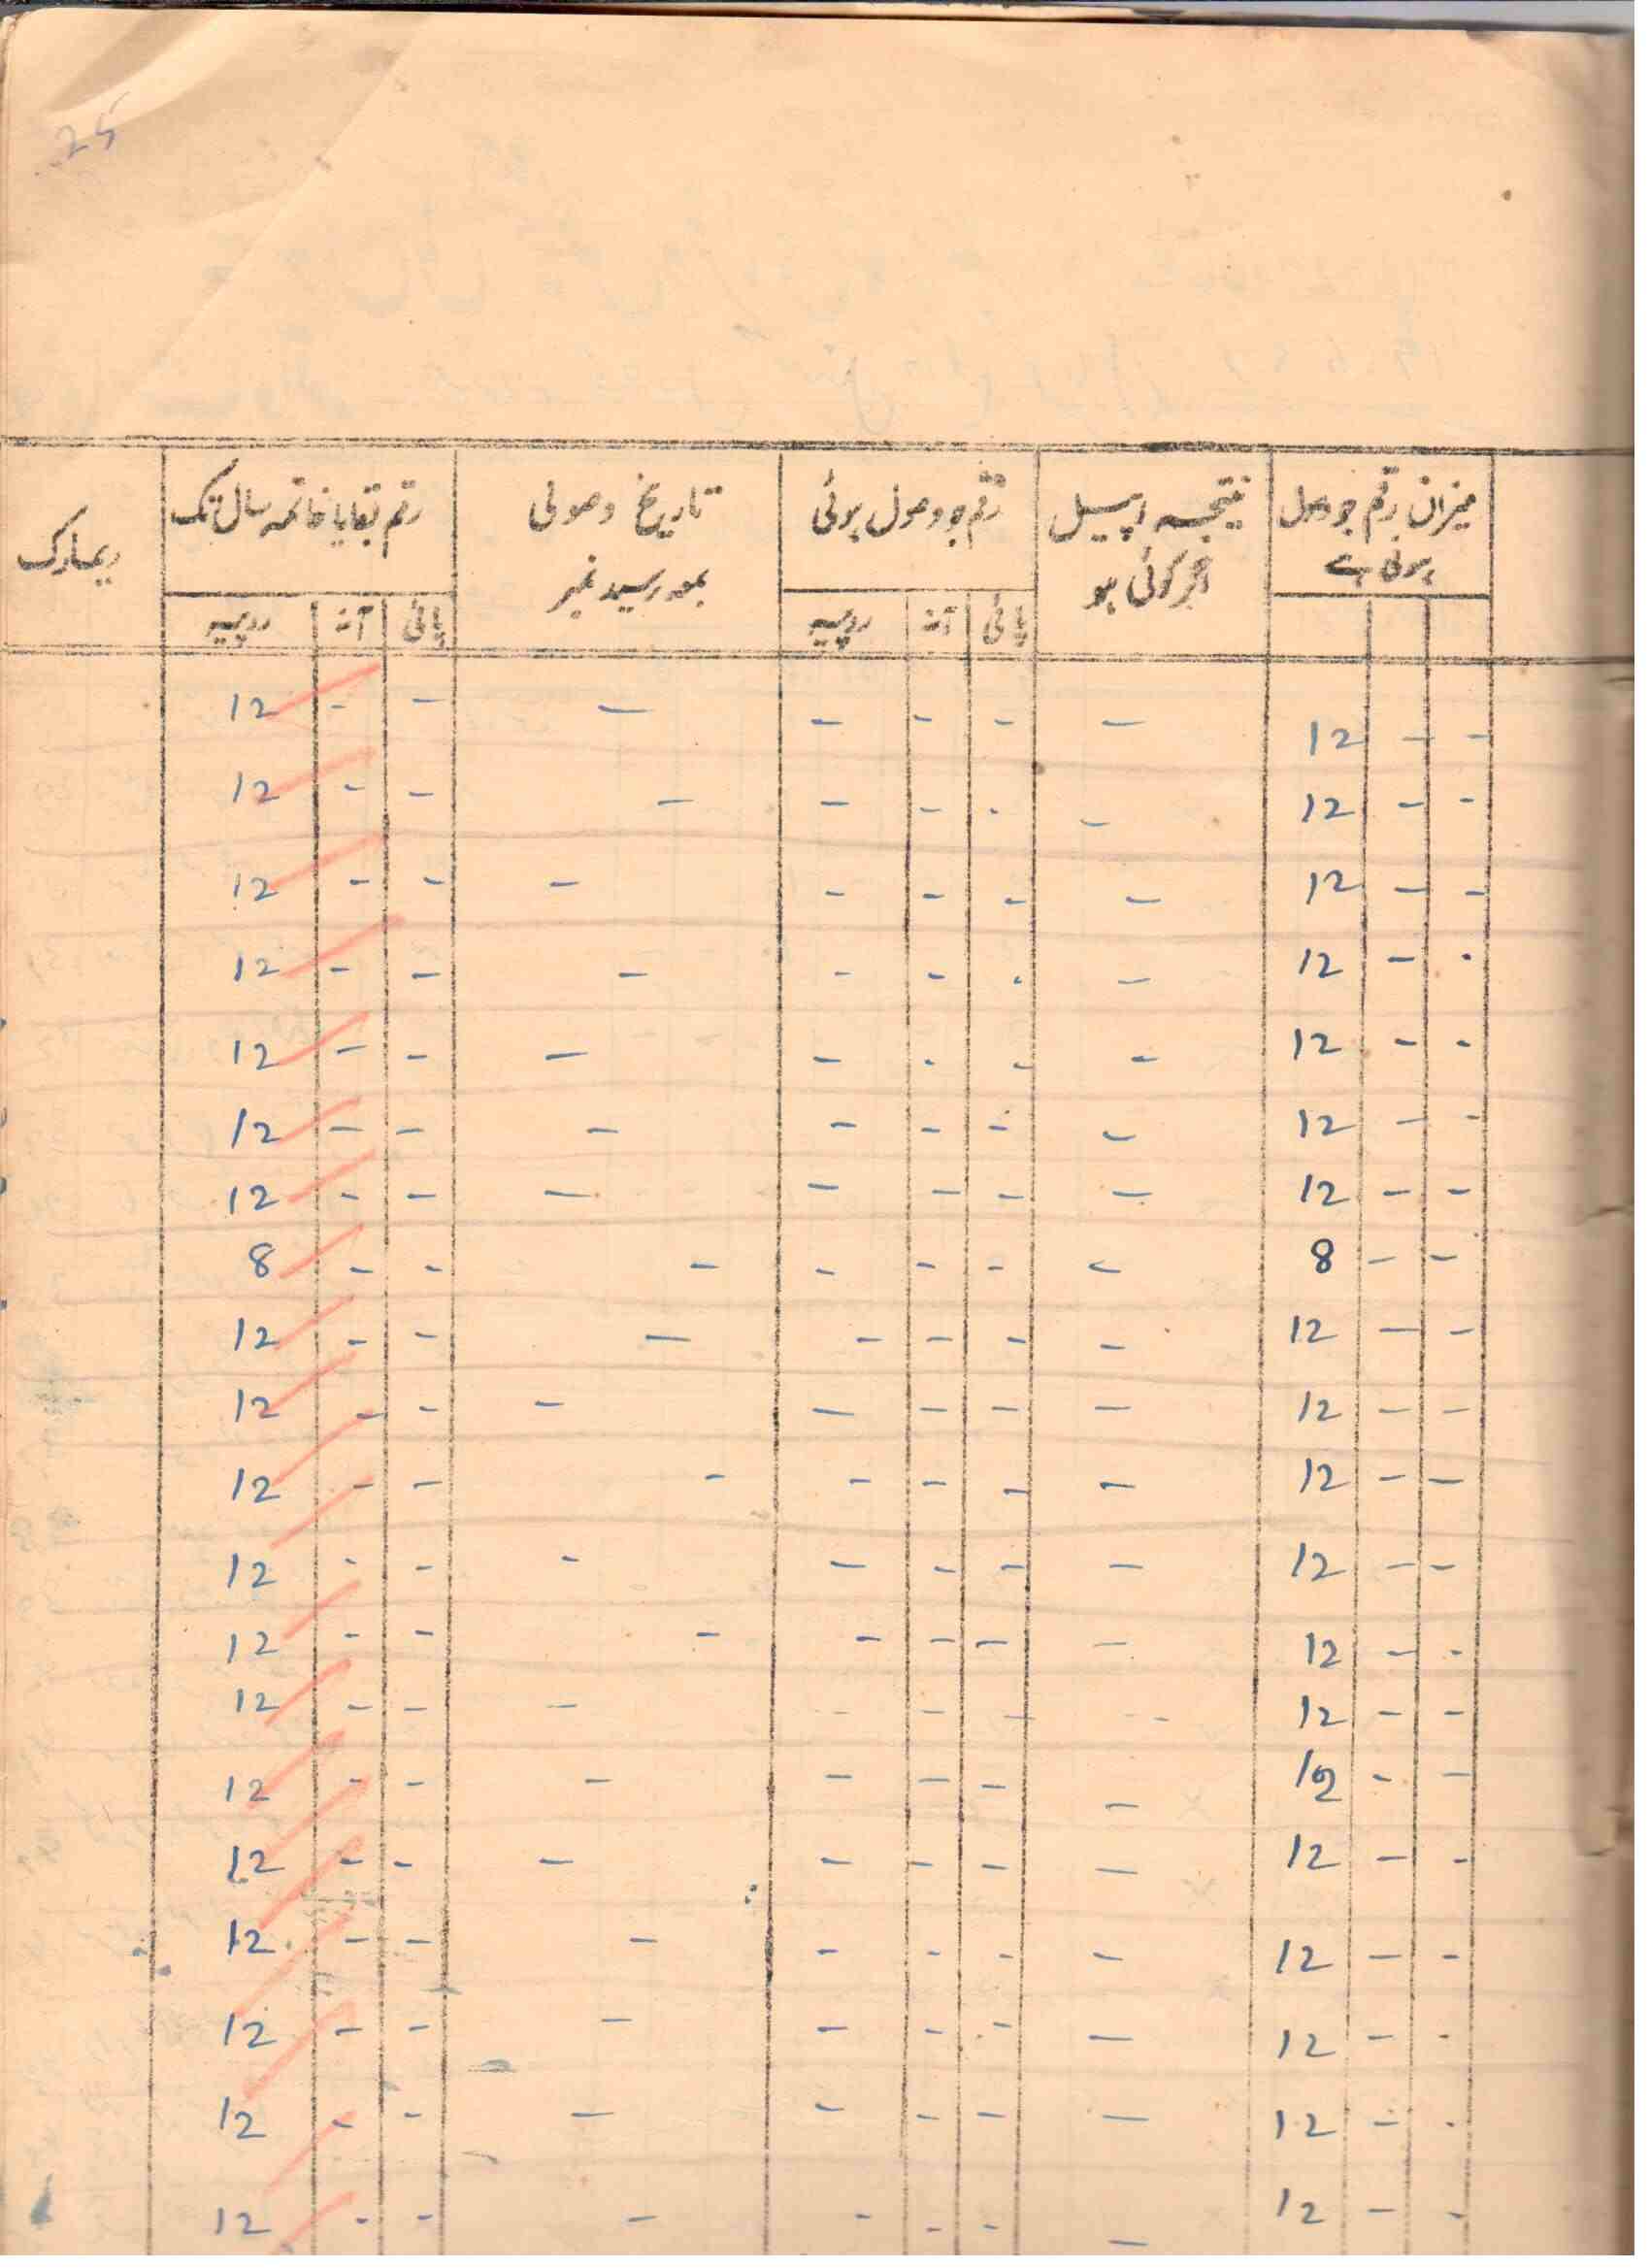 25
میزان رقم جو وصول ہوئی ہے | نتیجہ اپیل اگر کوئی ہو | رقم جو وصول ہوئی | تاریخ وصولی بمعہ رسید نمبر | رقم بقایا خاتمہ سال تک | ریمارک
پائی | آنہ | روپیہ | پائی | آنہ | روپیہ
12 - - | - | - - - | - | 12 - -
12 - - | - | - - - | - | 12 - -
12 - - | - | - - - | - | 12 - -
12 - - | - | - - - | - | 12 - -
12 - - | - | - - - | - | 12 - -
12 - - | - | - - - | - | 12 - -
12 - - | - | - - - | - | 12 - -
8 - - | - | - - - | - | 8 - -
12 - - | - | - - - | - | 12 - -
12 - - | - | - - - | - | 12 - -
12 - - | - | - - - | - | 12 - -
12 - - | - | - - - | - | 12 - -
12 - - | - | - - - | - | 12 - -
12 - - | - - | - - - | - | 12 - -
12 - - | - | - - - | - | 12 - -
12 - - | - | - - - | - | 12 - -
12 - - | - | - - - | - | 12 - -
12 - - | - | - - - | - | 12 - -
12 - - | - | - - - | - | 12 - -
12 - - | - | - - - | - | 12 - -